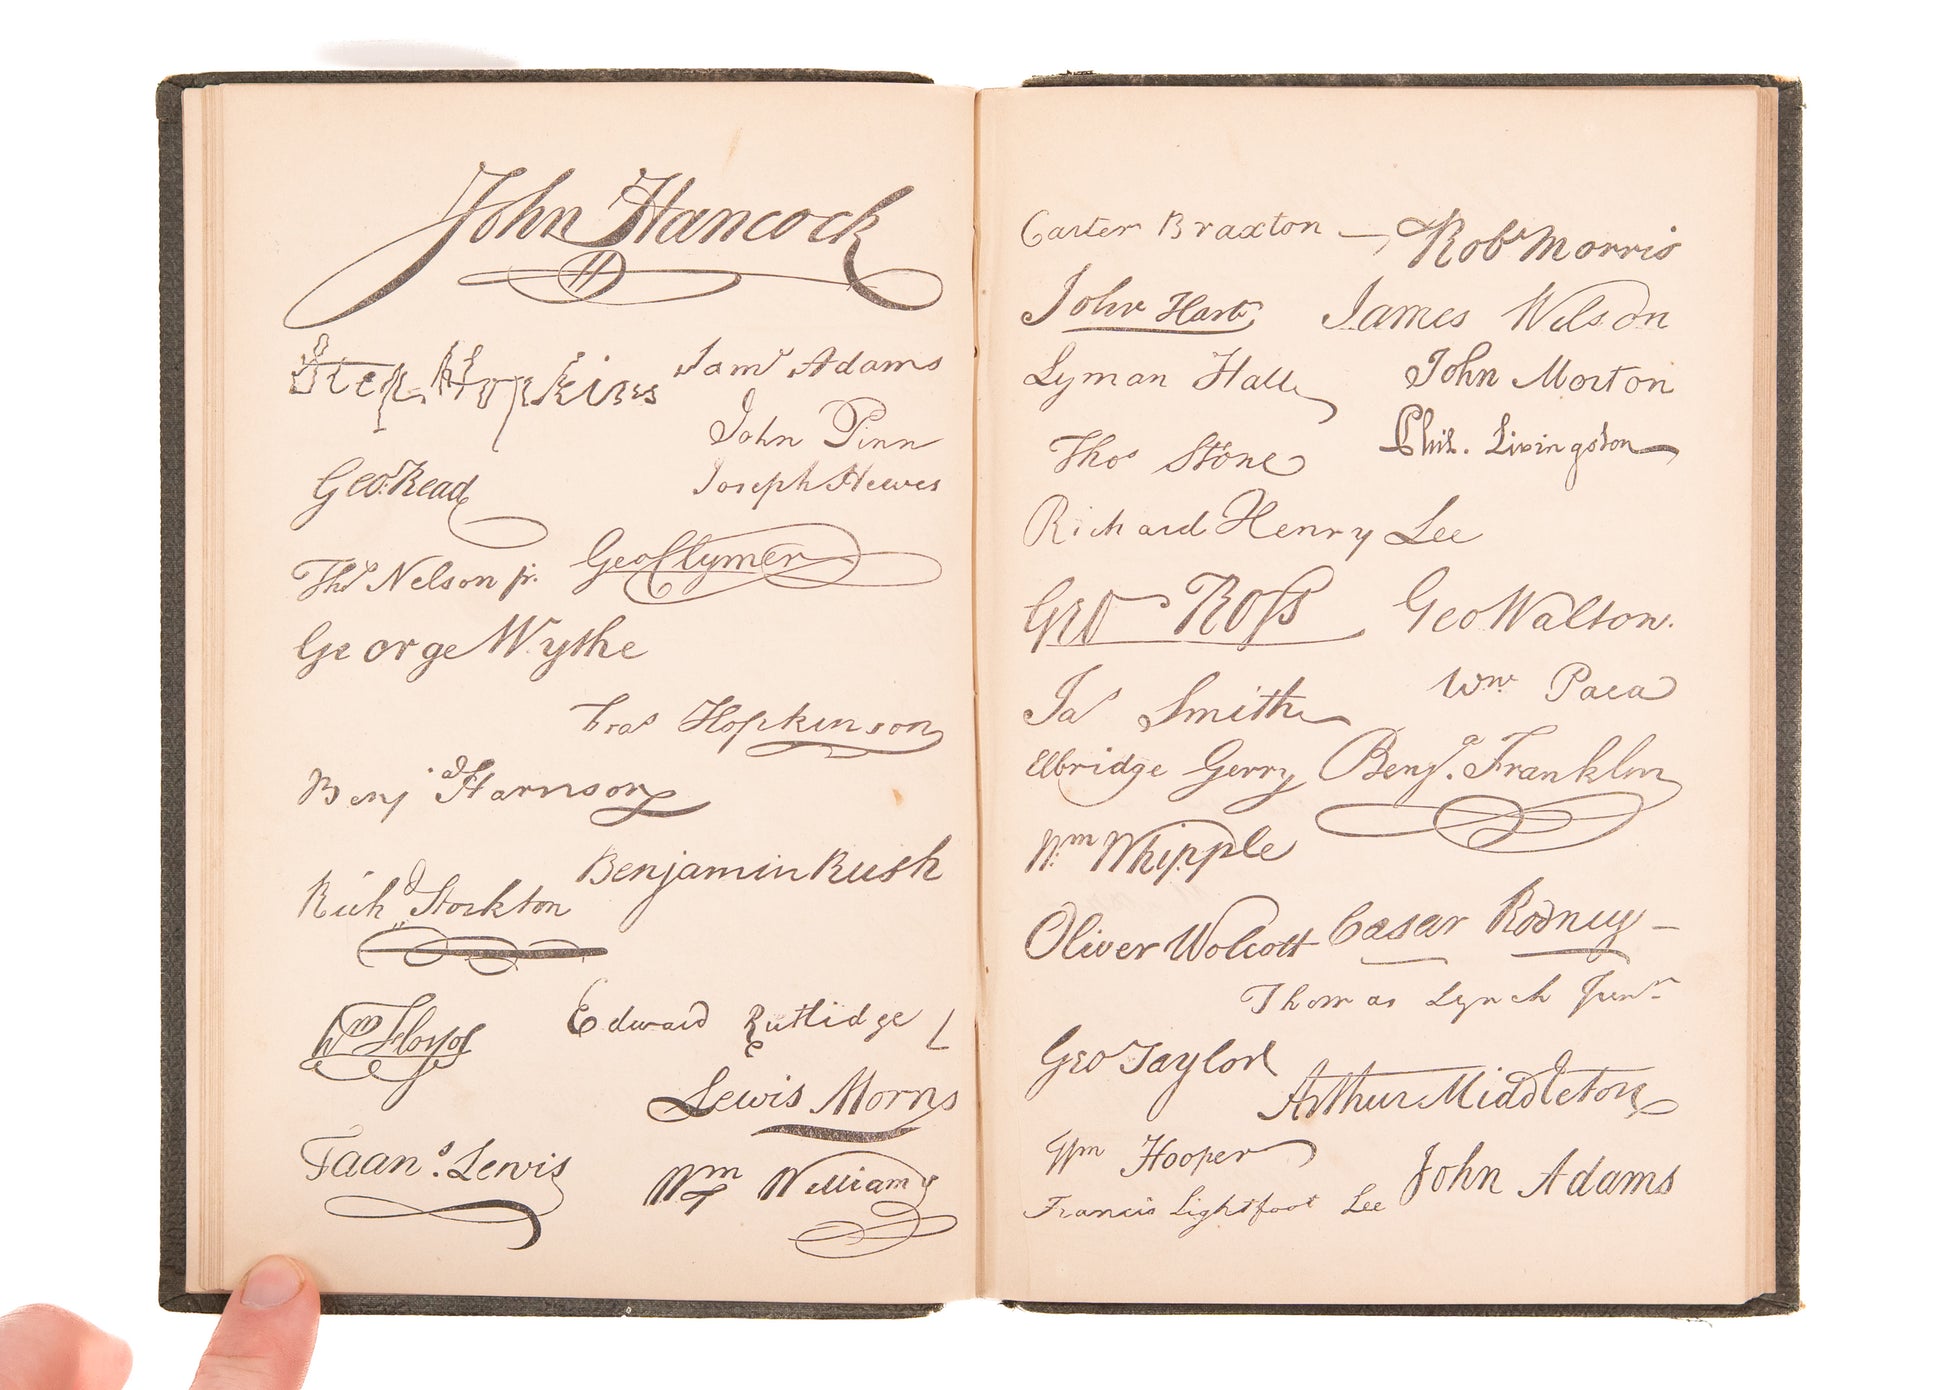 John Hancock
Step. Hopkins
Saml Adams
John Penn
Geo. Read
Joseph Hewes
Thos Nelson jr.
Geo Clymer
George Wythe
Fras Hopkinson
Benj Harrison
Benjamin Rush
Richd Stockton
Wm Floyd
Edward Rutlidge
Lewis Morris
Faans. Lewis
Wm Williams
Carter Braxton
Robt Morris
John Hart
James Wilson
Lyman Hall
John Morton
Thos Stone
Phil. Livingston
Richard Henry Lee
Geo Ross
Geo Walton.
Jas Smith
Wm Paca
Elbridge Gerry
Benja. Franklin
Wm Whipple
Oliver Wolcott
Casar Rodney
Thomas Lynch Junr
Geo Taylor
Arthur Middleton
Wm Hooper
John Adams
Francis Lightfoot Lee